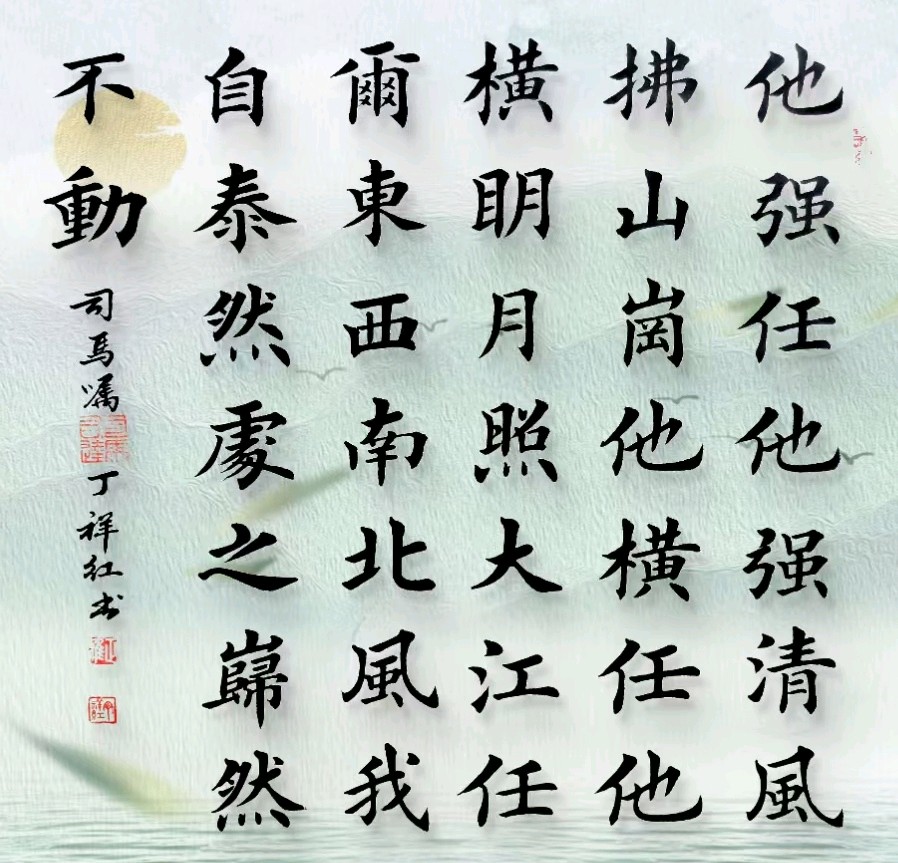 他强任他强清風
拂山崗他横任他
横明月照大江任
爾東西南北風我
自泰然處之巋然
不動
司馬嘱
丁祥红书